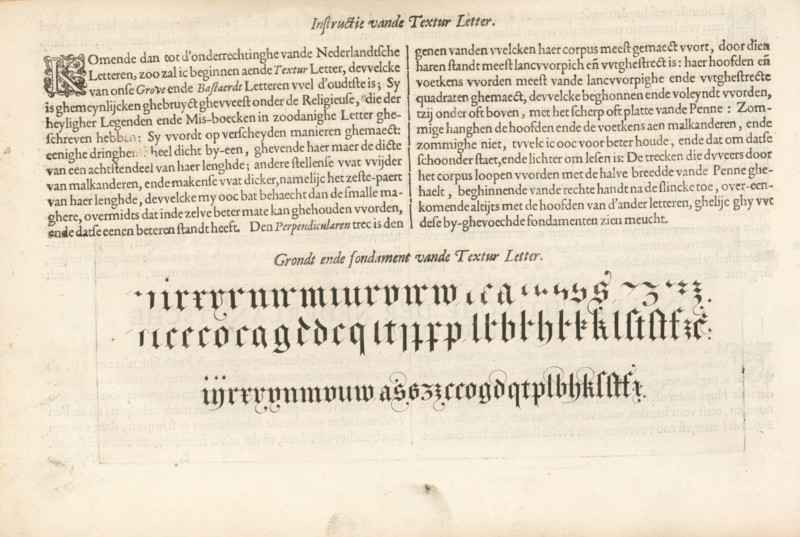 Instructie vande Textur Letter.
KOmende dan tot d'onderrechtinghe vande Nederlandtsche
Letteren, zoo zal ic beginnen aende Textur Letter, devvelcke
van onse Grove ende Bastaerde Letteren vvel d'oudtste is; Sy
is ghemeynlijcken ghebruyct ghevveest onder de Religieuse, die der
heyligher Legenden ende Mis-boecken in zoodanighe Letter ghe-
schreven hebben: Sy vvordt op verscheyden manieren ghemaect:
eenighe dringhen heel dicht by-een, ghevende haer maer de dicte
van een achtstendeel van haer lenghde; andere stellense vvat vvijder
van malkanderen, ende makense vvat dicker, namelijc het zeste-paert
van haer lenghde, devvelcke my ooc bat behaecht dan de smalle ma-
ghere, overmidts dat inde zelve beter mate kan ghehouden vvorden,
ende datse eenen beteren standt heeft. Den Perpendicularen trec is den
genen vanden vvelcken haer corpus meest gemaect vvort, door dien
haren standt meest lancvvorpich eñ vvtghestrect is: haer hoofden en
voetkens vvorden meest vande lancvvorpighe ende vvtghestrecte
quadraten ghemaect, devvelcke beghonnen ende voleyndt vvorden,
tzij onder oft boven, met het scherp oft platte vande Penne: Zom-
mige hanghen de hoofden ende de voetkens aen malkanderen, ende
zommighe niet, tvvelc ic ooc voor beter houde, ende dat om datse
schoonder staet, ende lichter om lesen is: De trecken die dvveers door
het corpus loopen vvorden met de halve breedde vande Penne ghe-
haelt, beghinnende vande rechte handt na de slincke toe, over-een-
komende altijts met de hoofden van d'ander letteren, ghelije ghy vvt
dese by-ghevoechde fondamenten zien meucht.
Grondt ende fondament vande Textur Letter.